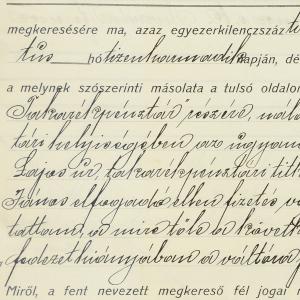 megkeresésére ma, azaz egyezerkilenczszáz ti
tus hó tizenharmadik napján, dé
a melynek szószerinti másolata a tulsó oldalon
Takarékpénztár" részére, nála
tári helyiségében az ugyan
Lajos úr, takarékpénztári titk
János elfogadó ellen fizetés vé
tattam, a mire tőle a követk
fedezet hiányában a váltóna
Miről, a fent nevezett megkereső fél jogai